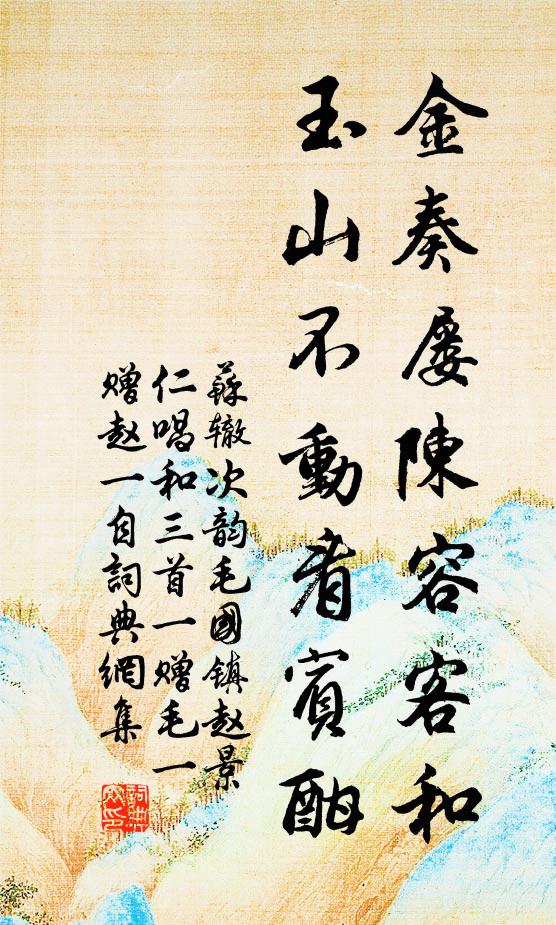 金奏屡陳容客和
玉山不動看賓酣
蘇辙次韵毛國鎮赵景
仁唱和三首一赠毛一
赠赵一自詞典網集